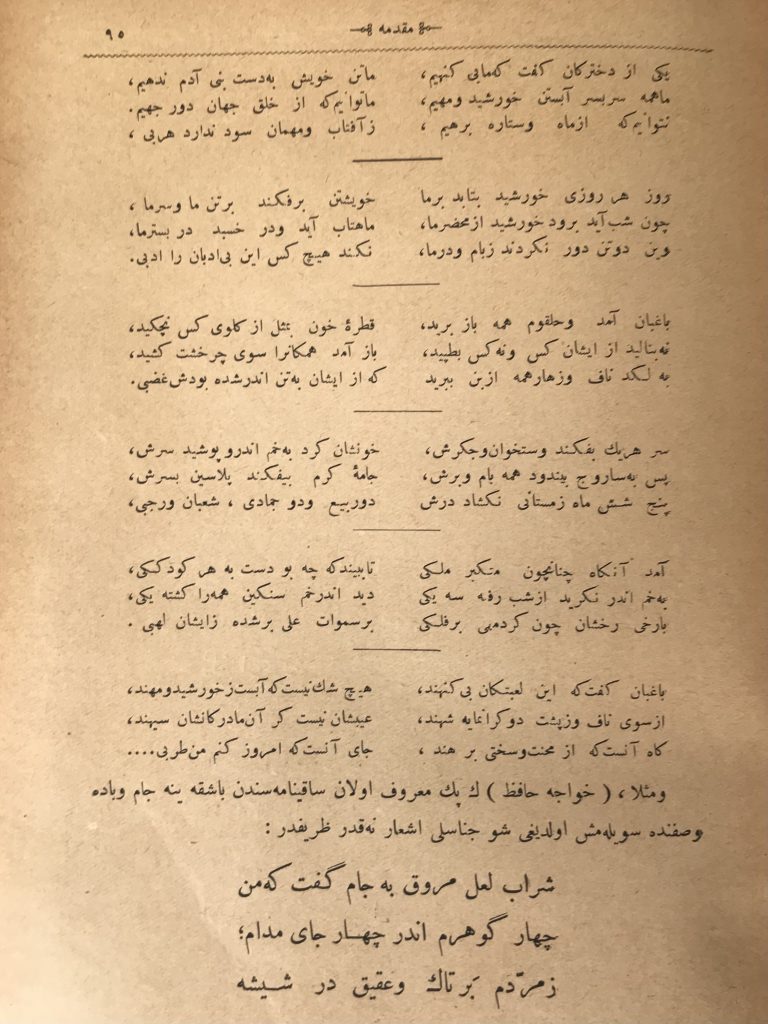 مقدمه ٩٥
یکی از دخترکان گفت که‌مابی گنهیم، ماتن خویش به‌دست بنی آدم ندهیم،
ماهمه سربسر آبستن خورشید ومهیم، ماتوانیم‌که از خلق جهان دور جهیم.
نتوانیم‌که ازماه وستاره برهیم ، زآفتاب ومهمان سود ندارد هربی ،
روز هر روزی خورشید بتابد برما خویشتن برفکند برتن ما وسرما ،
چون شب‌آید برود خورشید ازمحضرما، ماهتاب آید ودر خسبد در بسترما،
وین دوتن دور نکردند زبام ودرما، نکند هیچ کس این بی‌ادبان را ادبی.
باغبان آمد وحلقوم همه باز برید، قطرهٔ خون بمثل از کلوی کس نچکید،
نه‌بنالید از ایشان کس ونه‌کس بطپید، باز آمد همکانرا سوی چرخشت کشید،
به لکد ناف وزهارهمه ازبن ببرید که از ایشان به‌تن اندرشده بودش‌غضبی.
سر هریك بفکند وستخوان‌وجکرش، خونشان کرد به‌خم اندرو پوشید سرش،
پس به‌ساروج بیندود همه بام وبرش، جامهٔ کرم بیفکند پلاسین بسرش،
پنج شش ماه زمستانی نکشاد درش دوربیع ودو جمادی ، شعبان ورجبی،
آمد آنکاه چنانچون متکبر ملکی تابیندکه چه بو دست به هر کودککی،
به‌خم اندر نکرید ازشب رفته سه یکی دید اندرخم سنکین همه‌را کشته یکی،
بارخی رخشان چون کردمهی برفلکی برسموات علی برشده زایشان لهبی .
باغبان کفت‌که این لعبتکان بی‌کنهند، هیچ شك‌نیست‌که‌آبست‌زخورشیدومهند،
ازسوی ناف وزپشت دوکرانمایه شهند، عیبشان نیست کر آن‌مادرکانشان سیهند،
کاه آنست‌که از محنت‌وسختی بر هند ، جای آنست‌که امروز کنم من‌طربی....
ومثلا، ( خواجه حافظ ) ك پك معروف اولان ساقینامه‌سندن باشقه ینه جام وباده
وصفنده سویله‌مش اولدیغی شو جناسلی اشعار نه‌قدر ظریفدر :
شراب لعل مروق به جام گفت که‌من
چهار گوهرم اندر چهـار جای مدام؛
زمرّدم بَر تاك وعقیق در شیشه